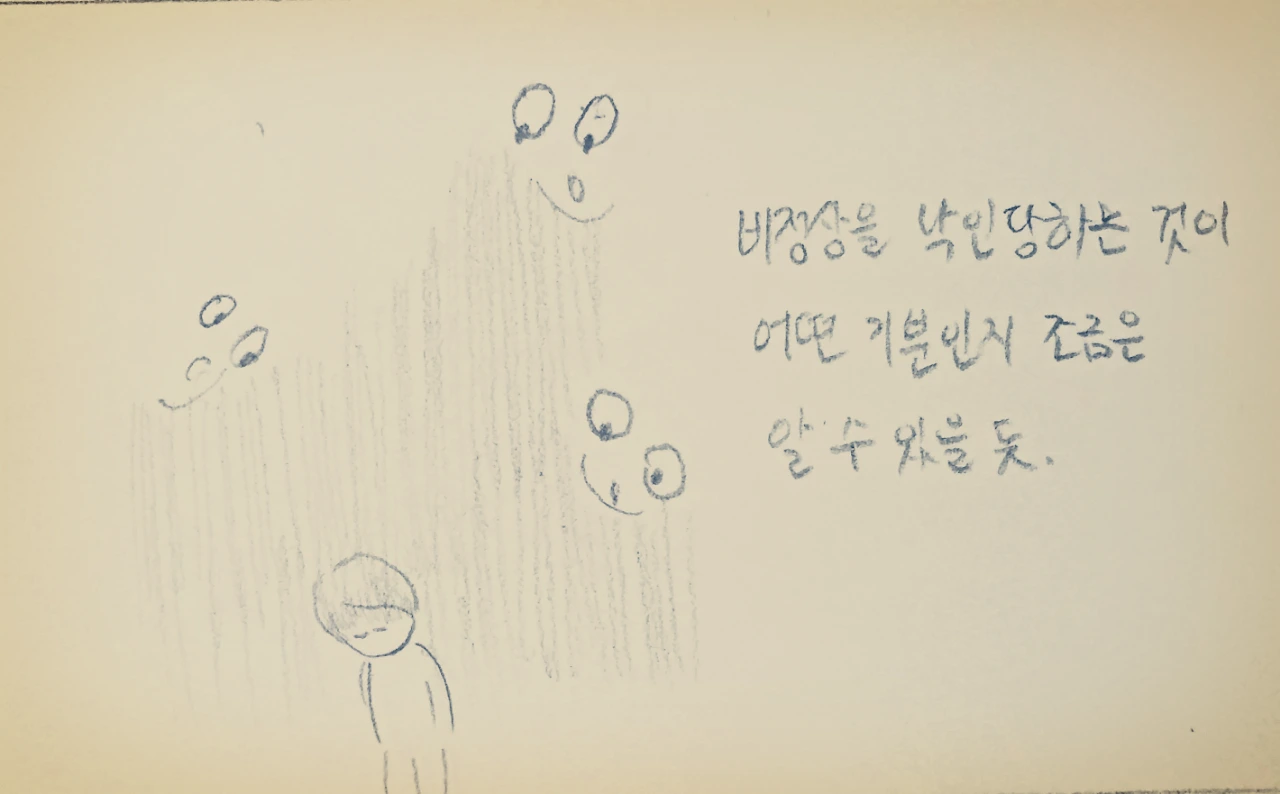 비정상을 낙인당하는 것이
어떤 기분인지 조금은
알 수 있을 듯.